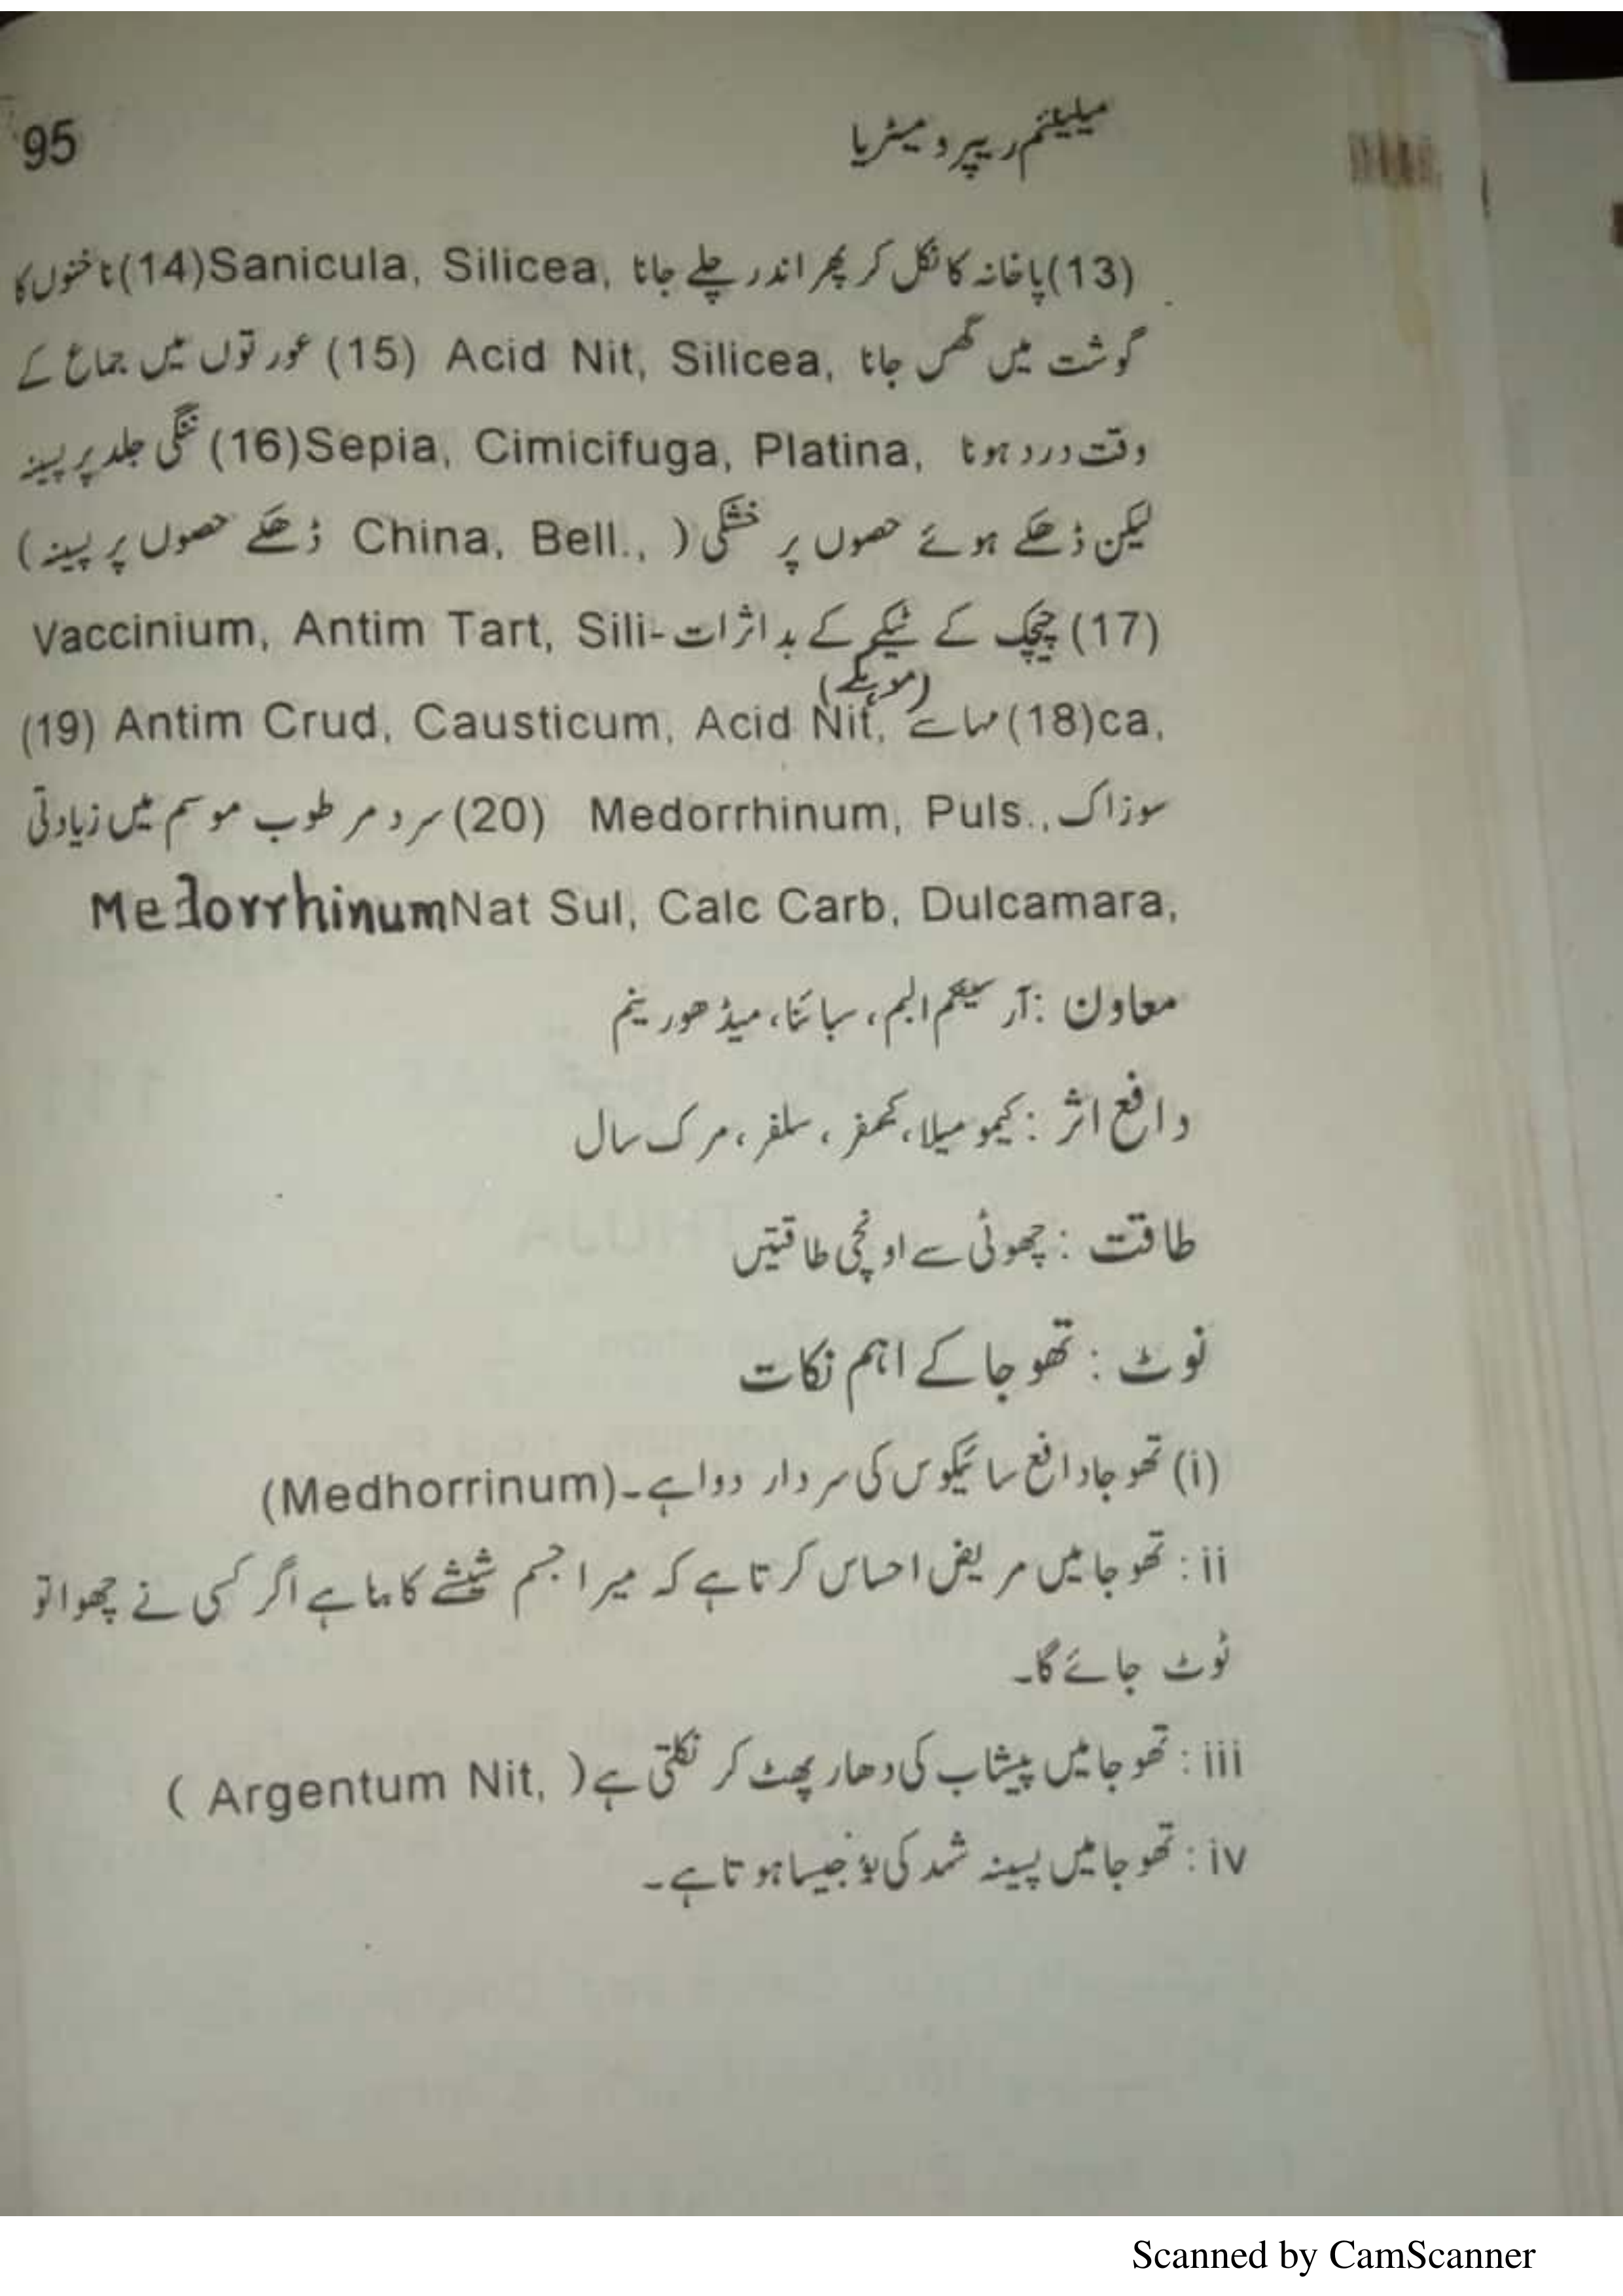 میلینیم ریپرو میٹریا 95
(13) پاخانہ کا نکل کر پھر اندر چلے جانا Sanicula, Silicea, (14) ناخنوں کا
گوشت میں گھس جانا Acid Nit, Silicea, (15) عورتوں میں جماع کے
وقت درد ہونا Sepia, Cimicifuga, Platina, (16) ننگی جلد پر پسینہ
لیکن ڈھکے ہوئے حصوں پر خشکی (China, Bell., ڈھکے حصوں پر پسینہ)
(17) چیچک کے ٹیکے کے بد اثرات Vaccinium, Antim Tart, Sili-
(موہکے)
ca, (18) مہاسے Antim Crud, Causticum, Acid Nit, (19)
سوزاک Medorrhinum, Puls., (20) سرد مرطوب موسم میں زیادتی
Nat Sul, Calc Carb, Dulcamara, Medorrhinum
معاون : آرسینکم البم، سبائنا، میڈھورینم
دافع اثر : کیمومیلا، کیمفر، سلفر، مرک سال
طاقت : چھوٹی سے اونچی طاقتیں
نوٹ : تھوجا کے اہم نکات
(i) تھوجا دافع سائیکوس کی سردار دوا ہے۔ (Medhorrinum)
ii : تھوجا میں مریض احساس کرتا ہے کہ میرا جسم شیشے کا بنا ہے اگر کسی نے چھوا تو
ٹوٹ جائے گا۔
iii : تھوجا میں پیشاب کی دھار پھٹ کر نکلتی ہے ( Argentum Nit, )
iv : تھوجا میں پسینہ شہد کی بو جیسا ہوتا ہے۔
Scanned by CamScanner